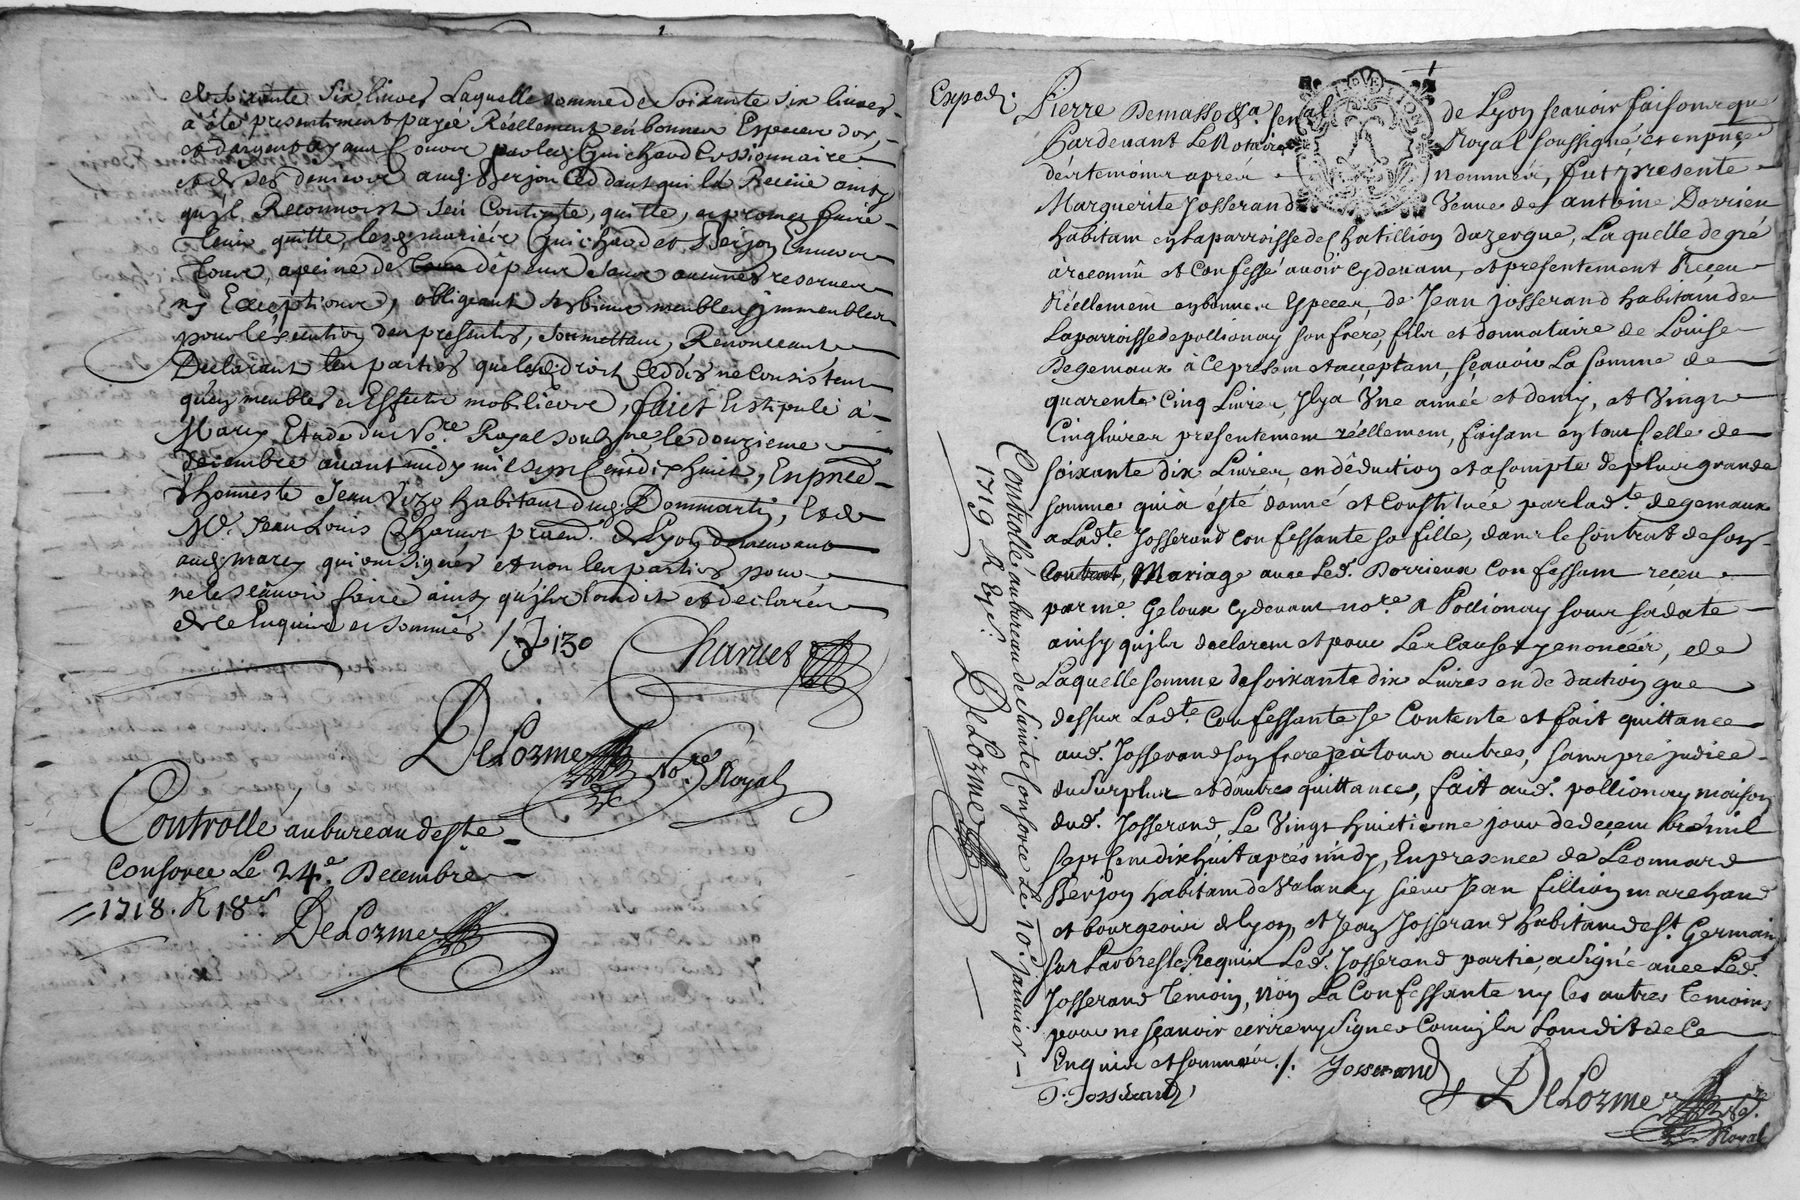 et soixante six livres Laquelle somme de soixante six livres
a été presentement payée Réellement en bonnes Especes d'or
et d'argent ayant Cours par led. Guichard Cessionnaire
et de ses deniers aud. Berjon Ceddant qui la Receüe ainsy
qu'il Reconnoist s'en Contente, quitte, et promet faire
tenir quitte, lesd. mariés Guichard et Berjon Envers
tous, a peine de tous dépens sans aucunes reserves
ny Exceptions, obligeant ses biens meubles immeubles
pour l'exécution des presentes, soumettant, Renonceant
Declarant les parties que lesd. droits Ceddés ne Consistent
qu'en meubles et Effects mobiliers, fait et stipulé à
Marcy Etude du No.re Royal soubsigné, le douzieme
décembre avant midy mil sept Cent dix huict, En pnce
d'honneste Jean Vizo habitant dud. Dommartin, et de
Me. Jean Louis Charvet praen. de Lyon demeurant
aud. marcy qui ont signés et non les parties pour
ne le sçavoir faire ainsy qu'ils l'ont dit et declaré
de ce Enquis et sommés
130
Charvet
DeLorme No.re Royal
Controllé au bureau de Ste
Consorce Le 24e. Decembre
1718. R 18s
DeLorme
Exped.
Pierre Demasso &a. senal de Lyon sçavoir faisons que
Pardevant Le Notaire Royal soussigné et en pnce
des temoins aprés nommés, fut presente
Marguerite Josserand Veuve de antoine Dorrieu
habitant en la parroisse de Chatillion dazergue, Laquelle de gré
à reconnû et confessé avoir cydevant, et presentement Receu
Réellement en bonnes Especes, de Jean Josserand habitant de
la parroisse de pollionay son frere, fils et donnataire de Louise
Degemaux à ce présent et acceptant, sçavoir La somme de
quarente Cinq Livres, Il y a Vne année et demy, et Vingt
Cinq livres presentement réellement, faisant en tout Celle de
soixante dix Livres, en déduction et a compte de plus grande
somme qui à ésté donné et Constituée par lad.te degemaux
a Lad.te Josserand confessante sa fille, dans le Contrat de son
Contrat, Mariage avec Led. Dorrieux Confessant reçeu
par me. Geloux cydevant no.re a Pollionay sous sa date
ainsy qu'ils declarent et pour Les Causes y enoncées, de
Laquelle somme de soixante dix Livres en deduction que
dessus Lad.te Confessante se Contente et fait quittance
aud. Josserand son frere et à tous autres, sans prejudice
du surplus et d'autre quittance, fait aud. pollionay maison
dud. Josserand, Le Vingt huictieme jour de decembre mil
sept Cent dix huit aprés midy, En presence de Leonnard
Berjon habitant de Valancy sieur Jean fillion marchand
et bourgeois de Lyon, et Jean Josserand habitant de St. Germain
sur Laubresle Requis Led. Josserand partie, a signé avec Led.
Josserand temoin, non La Confessante ny les autres temoins
pour ne sçavoir ecrire ny signer Comm'ils l'ont dit de ce
Enquis et sommés ./.
Josserand
J. Josserand
DeLorme No.re Royal
Controllé au bureau de Sainte Consorce Le 10e. Janvier
1719 R 12 s.
DeLorme